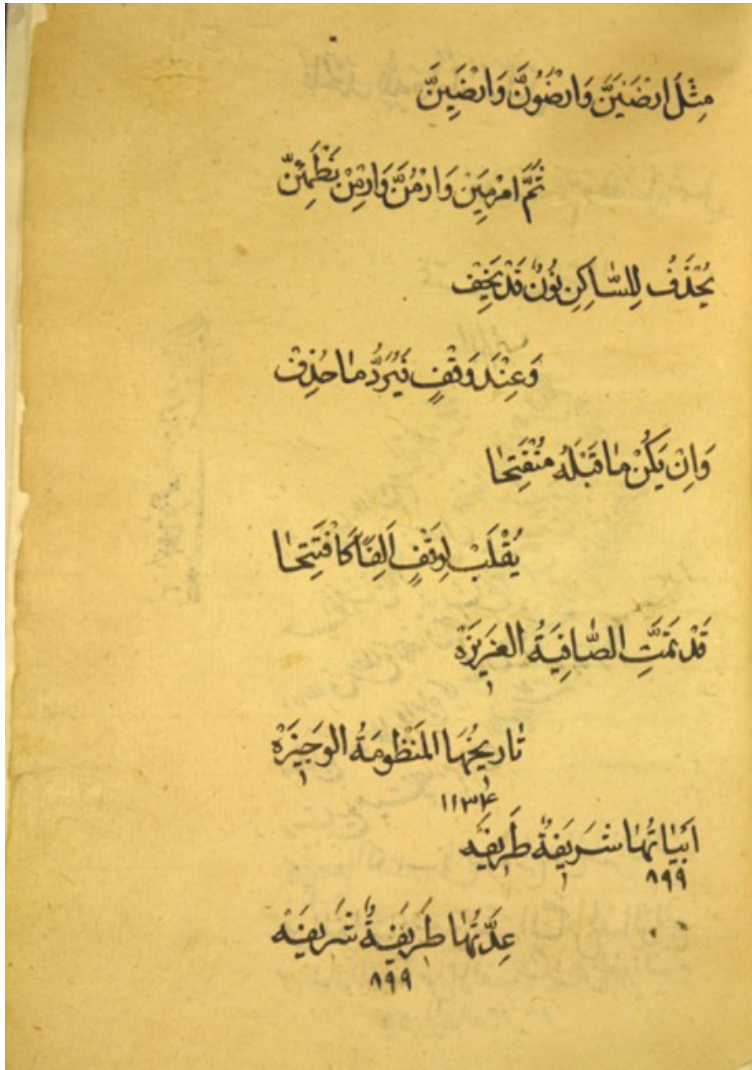 مِثْلُ ارْضَيَنَّ وَارْضَوُنَّ وَارْضَيِنَّ
ثُمَّ امْرِمِيَنْ وَارْمُنَّ وَارْمِنْ تَطْمَئِنّ
يُحْذَفُ لِلسَّاكِنِ نُونٌ قَدْ يَخِفْ
وَعِنْدَ وَقْفٍ يُرَدُّ مَا حُذِفْ
وَاِنْ يَكُنْ مَا قَبْلَهُ مُنْفَتِحَا
يُقْلَبْ لِوَقْفٍ اَلِفًا كَافْتِحَا
قَدْ تَمَّتِ الصَّافِيَةُ العَزِيزَةْ
تَارِيخُهَا المَنْظُومَةُ الوَجِيزَةْ
١١٣٤
اَبْيَاتُهَا شَرِيفَةٌ طَرِيفَه
٨٩٩
عِدَّتُهَا طَرِيفَةٌ شَرِيفَهْ
٨٩٩